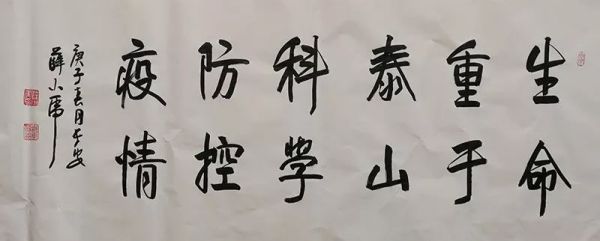 生命
重于
泰山
科学
防控
疫情
庚子春月
薛小